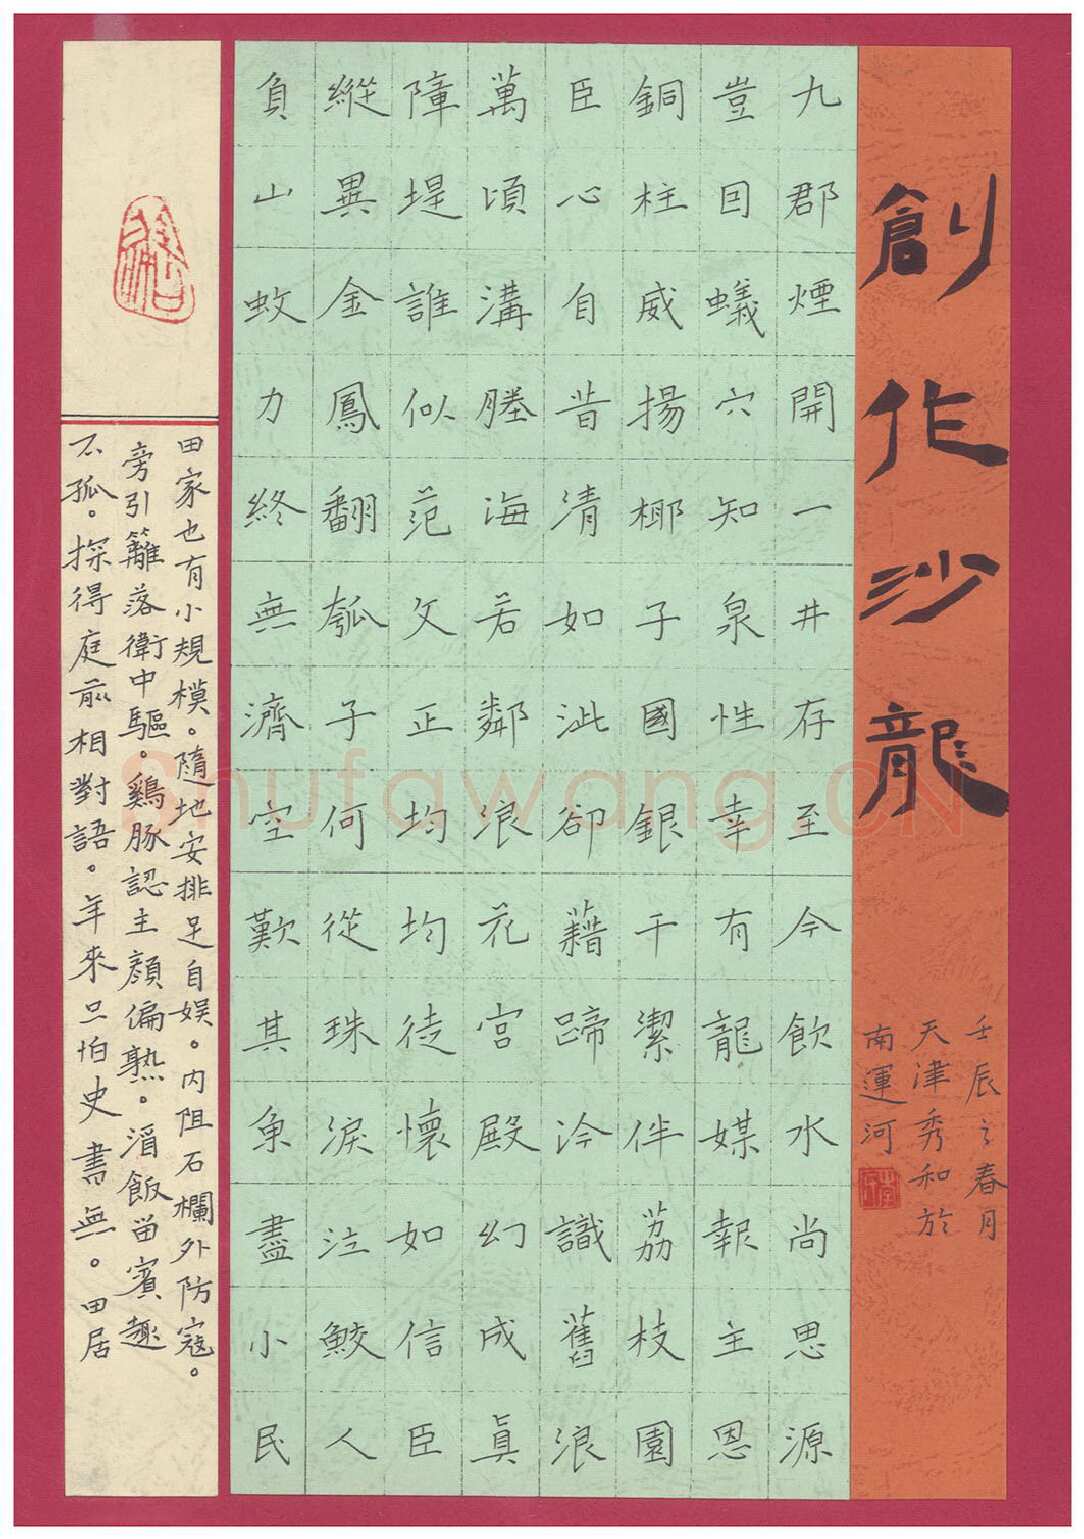 創作沙龍
壬辰之春月
天津秀和於
南運河
九郡煙開一井存至今飲水尚思源
豈囙蟻穴知泉性幸有龍媒報主恩
銅柱威揚椰子國銀干潔伴荔枝園
臣心自昔清如泚卻藉蹄汵識舊浪
萬頃溝塍海若鄰浪花宮殿幻成真
障堤誰似范文正均均徒懷如信臣
縱異金鳳翻瓠子何從珠淚泣鮫人
負山蚊力終無濟空歎其魚盡小民
田家也有小規模。隨地安排足自娱。内阻石欄外防寇。
旁引籬落衛中驅。鷄豚認主顔偏熟。酒飯留賓趣
不孤。探得庭前相對語。年來只怕史書無。田居
Shufawang.CN